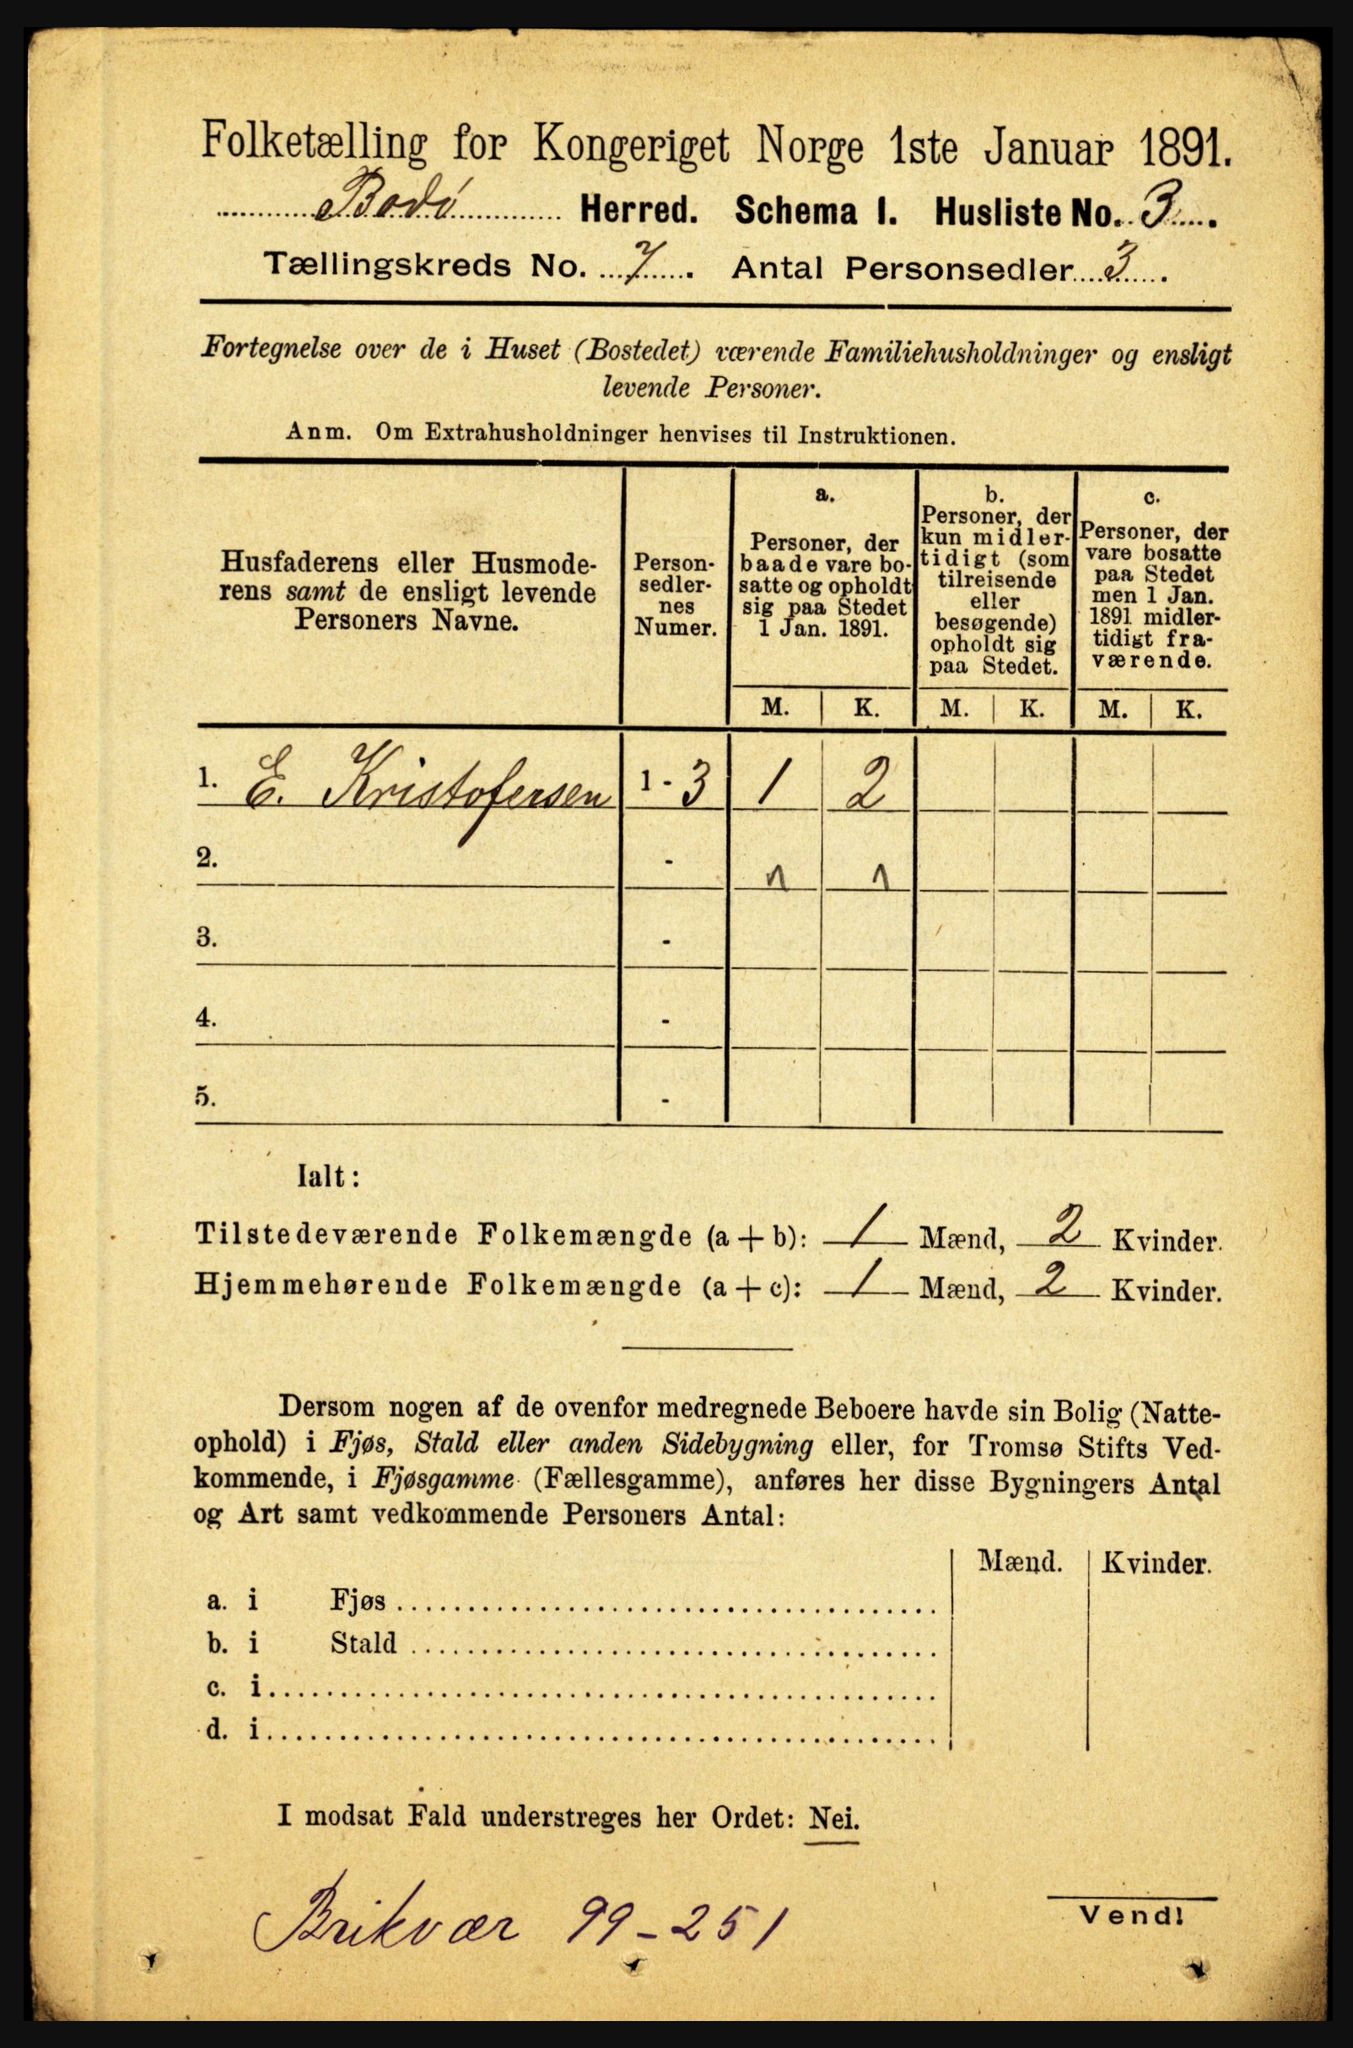 Folketælling for Kongeriget Norge 1ste Januar 1891.
Bodø Herred. Schema I. Husliste No. 3.
Tællingskreds No. 7. Antal Personsedler 3.
Fortegnelse over de i Huset (Bostedet) værende Familiehusholdninger og ensligt
levende Personer.
Anm. Om Extrahusholdninger henvises til Instruktionen.
Husfaderens eller Husmode-
rens samt de ensligt levende
Personers Navne.
Person-
sedler-
nes
Numer.
a.
Personer, der
baade vare bo-
satte og opholdt
sig paa Stedet
1 Jan. 1891.
b.
Personer, der
kun midler-
tidigt (som
tilreisende
eller
besøgende)
opholdt sig
paa Stedet.
c.
Personer, der
vare bosatte
paa Stedet
men 1 Jan.
1891 midler-
tidigt fra-
værende.
M. K. M. K. M. K.
1. E. Kristofersen 1 - 3 1 2
2. - 1 1
3. -
4. -
5. -
Ialt:
Tilstedeværende Folkemængde (a + b): 1 Mænd, 2 Kvinder.
Hjemmehørende Folkemængde (a + c): 1 Mænd, 2 Kvinder.
Dersom nogen af de ovenfor medregnede Beboere havde sin Bolig (Natte-
ophold) i Fjøs, Stald eller anden Sidebygning eller, for Tromsø Stifts Ved-
kommende, i Fjøsgamme (Fællesgamme), anføres her disse Bygningers Antal
og Art samt vedkommende Personers Antal:
Mænd. Kvinder.
a. i Fjøs
b. i Stald
c. i
d. i
I modsat Fald understreges her Ordet: Nei.
Brikvær 99-251
Vend!